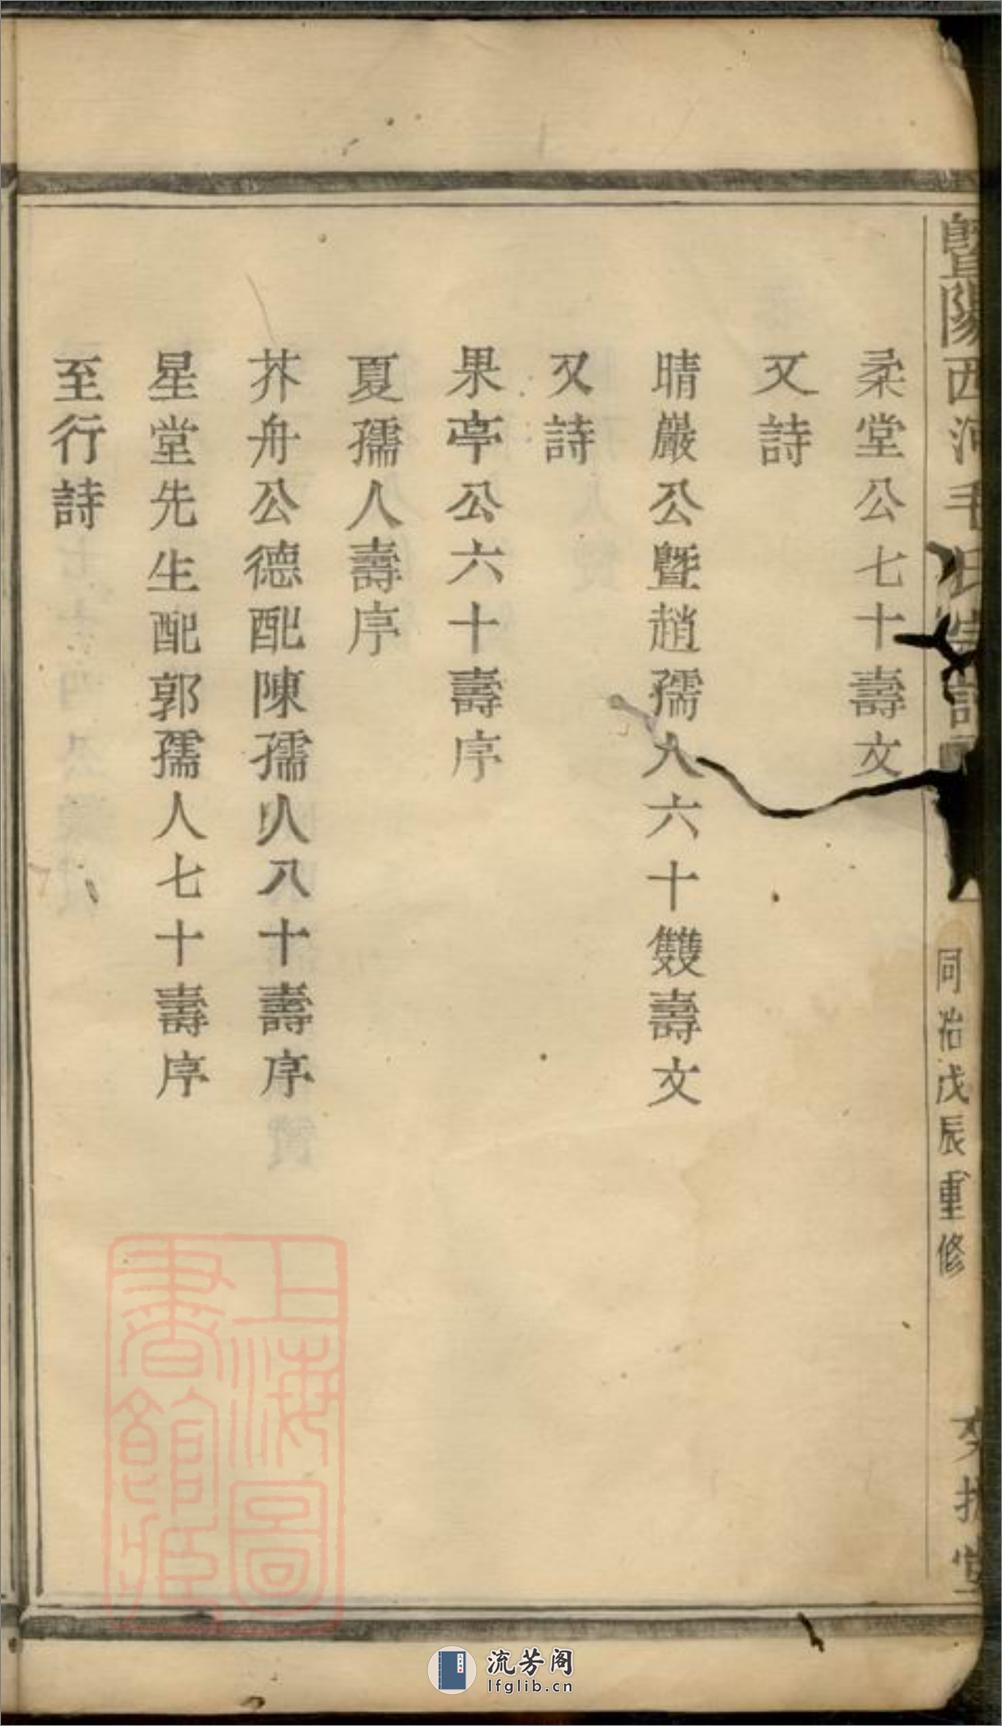 暨陽西河毛氏宗譜
同治戊辰重修
堂
柔堂公七十壽文
又詩
晴巖公暨趙孺人六十雙壽文
又詩
果亭公六十壽序
夏孺人壽序
芥舟公德配陳孺人八十壽序
星堂先生配郭孺人七十壽序
至行詩
上海圖書館藏
流芳阁
lfglib.cn